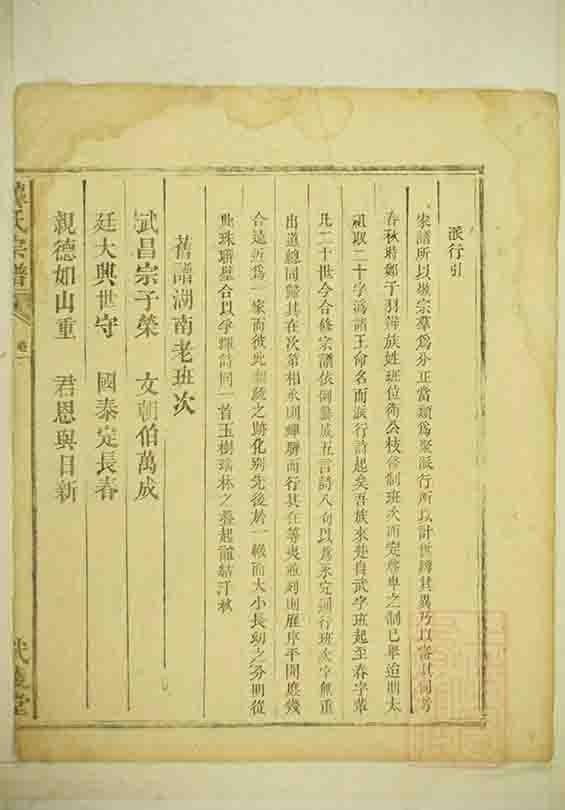 派行引
家譜所以敬宗羣爲分正當類爲聚派行所以計世辨其異乃以審其同考
春秋時鄭子羽辨族姓班位衛公枝修制班次而定尊卑之制已舉迨明太
祖取二十字爲諸王命名而派行詩起矣吾族來楚自武字班起至春字輩
凡二十世今合修宗譜依倒纂成五言詩八句以爲永定通行班次字無重
出道總同歸其在次第相承則蟬聯而行其在等夷並列則雁序平開庶幾
合遠近爲一家而彼此疏之跡化別先後於一線而大小長幼之分明從
此珠聯璧合以孚輝詩同一首玉樹瑤林之發起
舊譜湖南老班次
武昌宗子榮 文朝伯萬成
廷大興世守 國泰定長春
親德如山重 君恩與日新
氏宗譜 卷一
堂